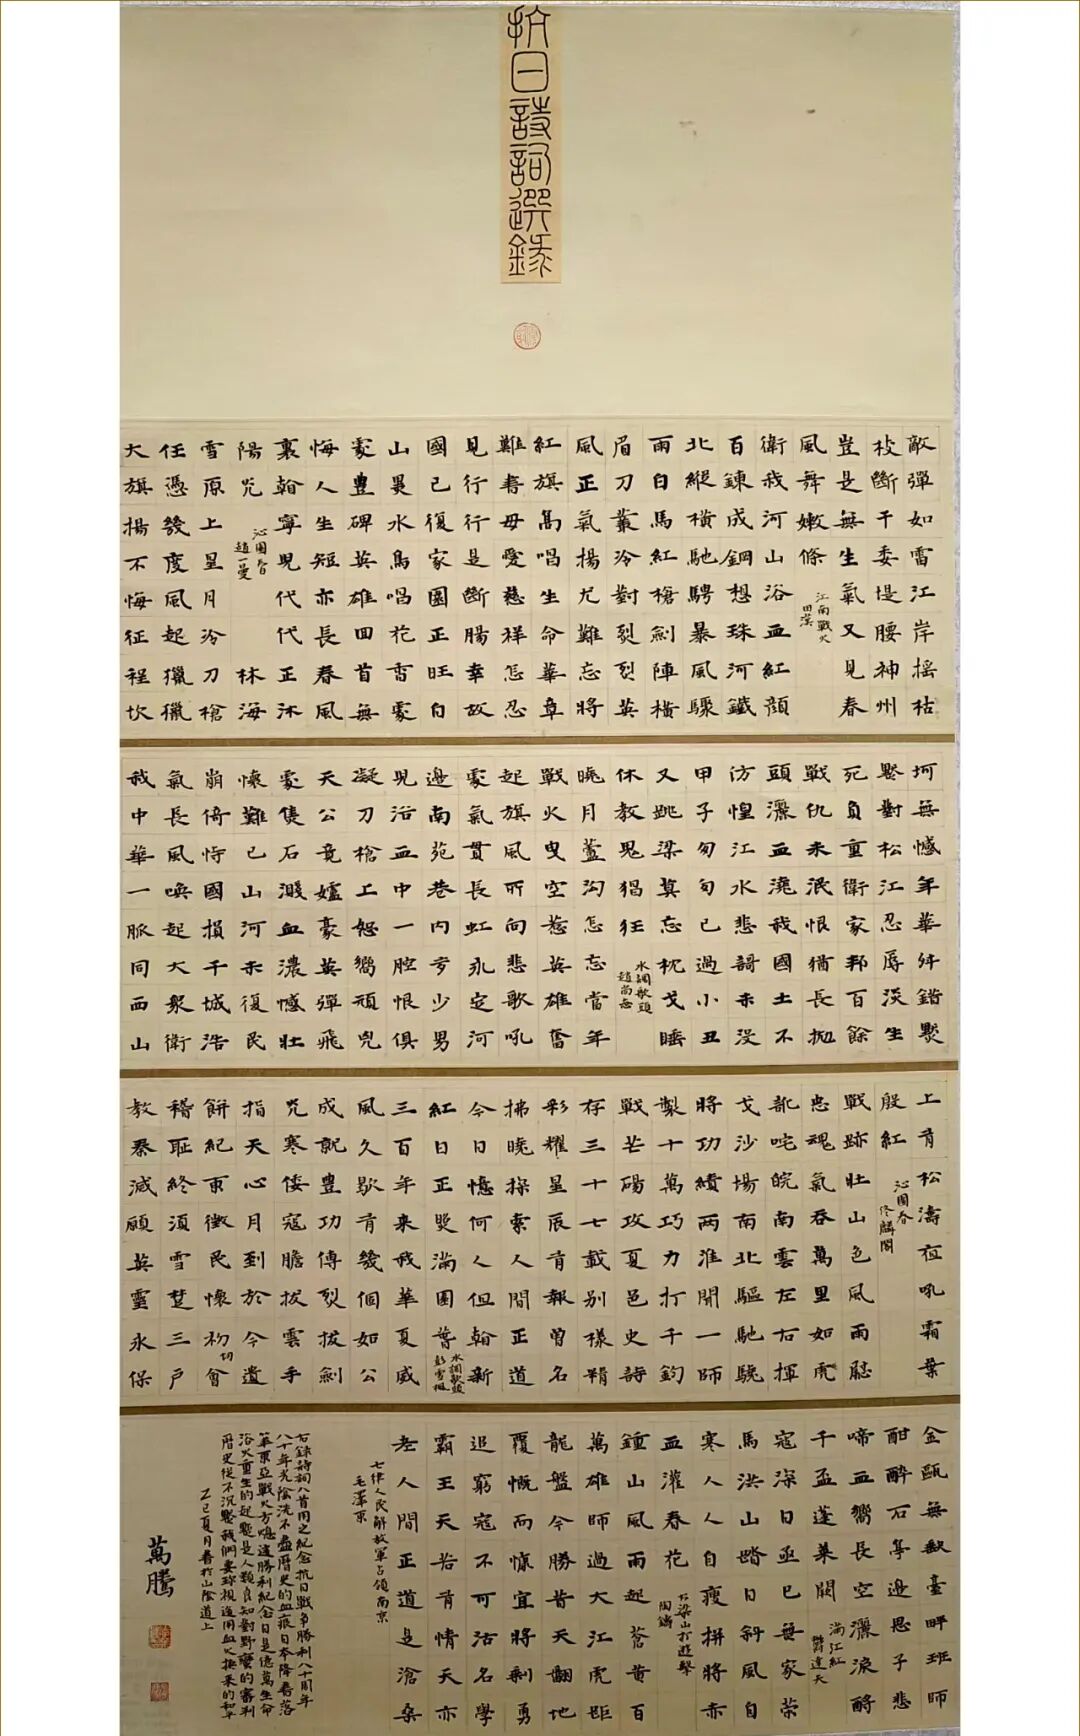 抗日詩詞選錄
敵彈如雷江岸搖枯
枝斷干委堤腰神州
豈是無生氣又見春
風舞嫩條
江南戰火
田漢
衛我河山浴血紅顏
百鍊成鋼想珠河鐵
北縱橫馳騁暴風驟
雨白馬紅槍劍陣橫
眉刀叢冷對烈烈英
風正氣揚尤難忘將
紅旗高唱生命華章
難書母愛慈祥怎忍
見行行是斷腸幸故
國已復家園正旺白
山異水鳥唱花香處
處豐碑英雄回首無
悔人生短亦長春風
裏翰寧兒代代正沐
陽光
沁園春
趙一曼
林海
雪原上星月冷刀槍
任憑幾度風起獵獵
大旗揚不悔征程坎
坷無憾年華舛錯默
默對松江忍辱淡生
死負重衛家邦百餘
戰仇未泯恨猶長拋
頭灑血澆我國土不
彷惶江水悲謌未沒
甲子匆匆已過小丑
又跳梁莫忘枕戈睡
休教鬼猖狂
水調歌頭
趙尚志
曉月蘆溝怎忘當年
戰火曳空惹英雄奮
起旗風所向悲歌吼
處氣貫長虹永定河
邊南苑巷內多少男
兒浴血中一腔恨俱
凝刀槍上怒嚮頑兇
天公竟爐豪英彈飛
處隻石濺血濃憾壯
懷難已山河未復民
崩倚恃國損千城浩
氣長風喚起大衆衛
我中華一脈同西山
上青松濤夜吼霜葉
殷紅
沁園春
佟麟閣
戰跡壯山色風雨慰
忠魂氣吞萬里如虎
叱咤皖南雲左右揮
戈沙場南北驅馳驍
將功績兩淮開一師
製十萬巧力打千鈞
戰芒碭攻夏邑史詩
存三十七載別樣
彩耀星辰肯報曾名
拂曉探索人間正道
今日憶何人但翰新
紅日正煛滿園譽
水調歌頭
彭雪楓
三百年來我華夏威
風久歇有幾個如公
成就豐功偉烈拔劍
光寒倭寇膽拔雲手
指天心月到於今遺
餅紀東徵民懷切會
稽恥終須雪楚三戶
教秦滅願英靈永保
金甌無缺臺畔班師
酣醉石亭邊思子悲
啼血嚮長空灑淚酹
千盃蓬萊闕
滿江紅
鬱達夫
寇深日亟已無家榮
馬洪山踏日斜風自
寒人人自瘦拼將赤
血灌春花
石梁山打遊擊
陶鑄
鍾山風雨起蒼黃百
萬雄師過大江虎踞
龍盤今勝昔天翻地
覆慨而慷宜將剩勇
追窮寇不可沽名學
霸王天若有情天亦
老人間正道是滄桑
七律人民解放軍占領南京
毛澤東
右錄詩詞八首用之紀念抗日戰爭勝利八十周年
八十年光陰洗不盡曆史的血痕日本降書落
筆東亞戰火方熄這勝利紀念日是億萬生命
浴火重生的起點是人類良知對野蠻的審判
曆史從不沉默我們要珍視這用血火換來的和平
乙巳夏月書於山陰道上
萬騰